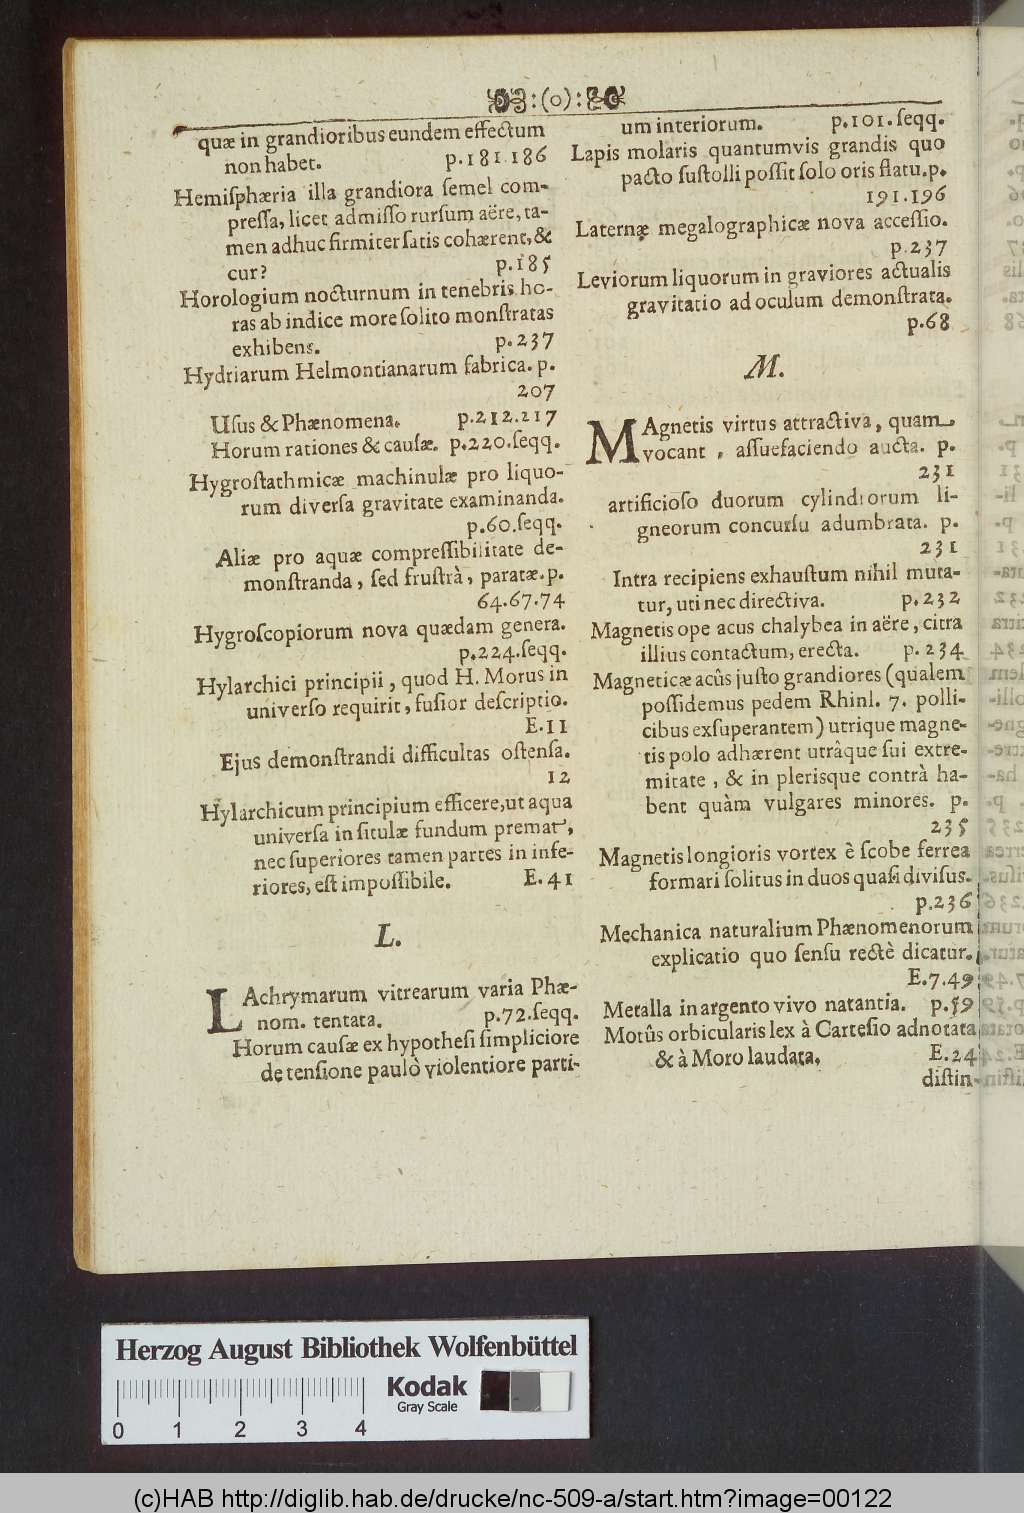 :(o):
quæ in grandioribus eundem effectum
non habet. p.181.186
Hemiſphæria illa grandiora ſemel com-
preſſa, licet admiſſo rurſum aëre, ta-
men adhuc firmiter ſatis cohærent, &
cur? p.185
Horologium nocturnum in tenebris ho-
ras ab indice more ſolito monſtratas
exhibens. p.237
Hydriarum Helmontianarum fabrica. p.
207
Uſus & Phænomena. p.212.217
Horum rationes & cauſæ. p.220.ſeqq.
Hygroſtathmicæ machinulæ pro liquo-
rum diverſa gravitate examinanda.
p.60.ſeqq.
Aliæ pro aquæ compreſſibilitate de-
monſtranda, ſed fruſtrà, paratæ. p.
64.67.74
Hygroſcopiorum nova quædam genera.
p.224.ſeqq.
Hylarchici principii, quod H. Morus in
univerſo requirit, fuſior deſcriptio.
E.11
Ejus demonſtrandi difficultas oſtenſa.
12
Hylarchicum principium efficere, ut aqua
univerſa in ſitulæ fundum premat,
nec ſuperiores tamen partes in infe-
riores, eſt impoſſibile. E.41
L.
LAchrymarum vitrearum varia Phæ-
nom. tentata. p.72.ſeqq.
Horum cauſæ ex hypotheſi ſimpliciore
de tenſione paulò violentiore parti-
um interiorum. p.101.ſeqq.
Lapis molaris quantumvis grandis quo
pacto ſuſtolli poſſit ſolo oris flatu. p.
191.196
Laternæ megalographicæ nova acceſſio.
p.237
Leviorum liquorum in graviores actualis
gravitatio ad oculum demonſtrata.
p.68
M.
MAgnetis virtus attractiva, quam
vocant, aſſuefaciendo aucta. p.
231
artificioſo duorum cylindrorum li-
gneorum concurſu adumbrata. p.
231
Intra recipiens exhauſtum nihil muta-
tur, uti nec directiva. p.232
Magnetis ope acus chalybea in aëre, citra
illius contactum, erecta. p.234
Magneticæ acûs juſto grandiores (qualem
poſſidemus pedem Rhinl. 7. polli-
cibus exſuperantem) utrique magne-
tis polo adhærent utrâque ſui extre-
mitate, & in plerisque contrà ha-
bent quàm vulgares minores. p.
235
Magnetis longioris vortex è ſcobe ferrea
formari ſolitus in duos quaſi diviſus.
p.236
Mechanica naturalium Phænomenorum
explicatio quo ſenſu rectè dicatur.
E.7.49
Metalla in argento vivo natantia. p.59
Motûs orbicularis lex à Carteſio adnotata
& à Moro laudata. E.24
diſtin-
Herzog August Bibliothek Wolfenbüttel
Kodak
Gray Scale
0 1 2 3 4
(c)HAB http://diglib.hab.de/drucke/nc-509-a/start.htm?image=00122